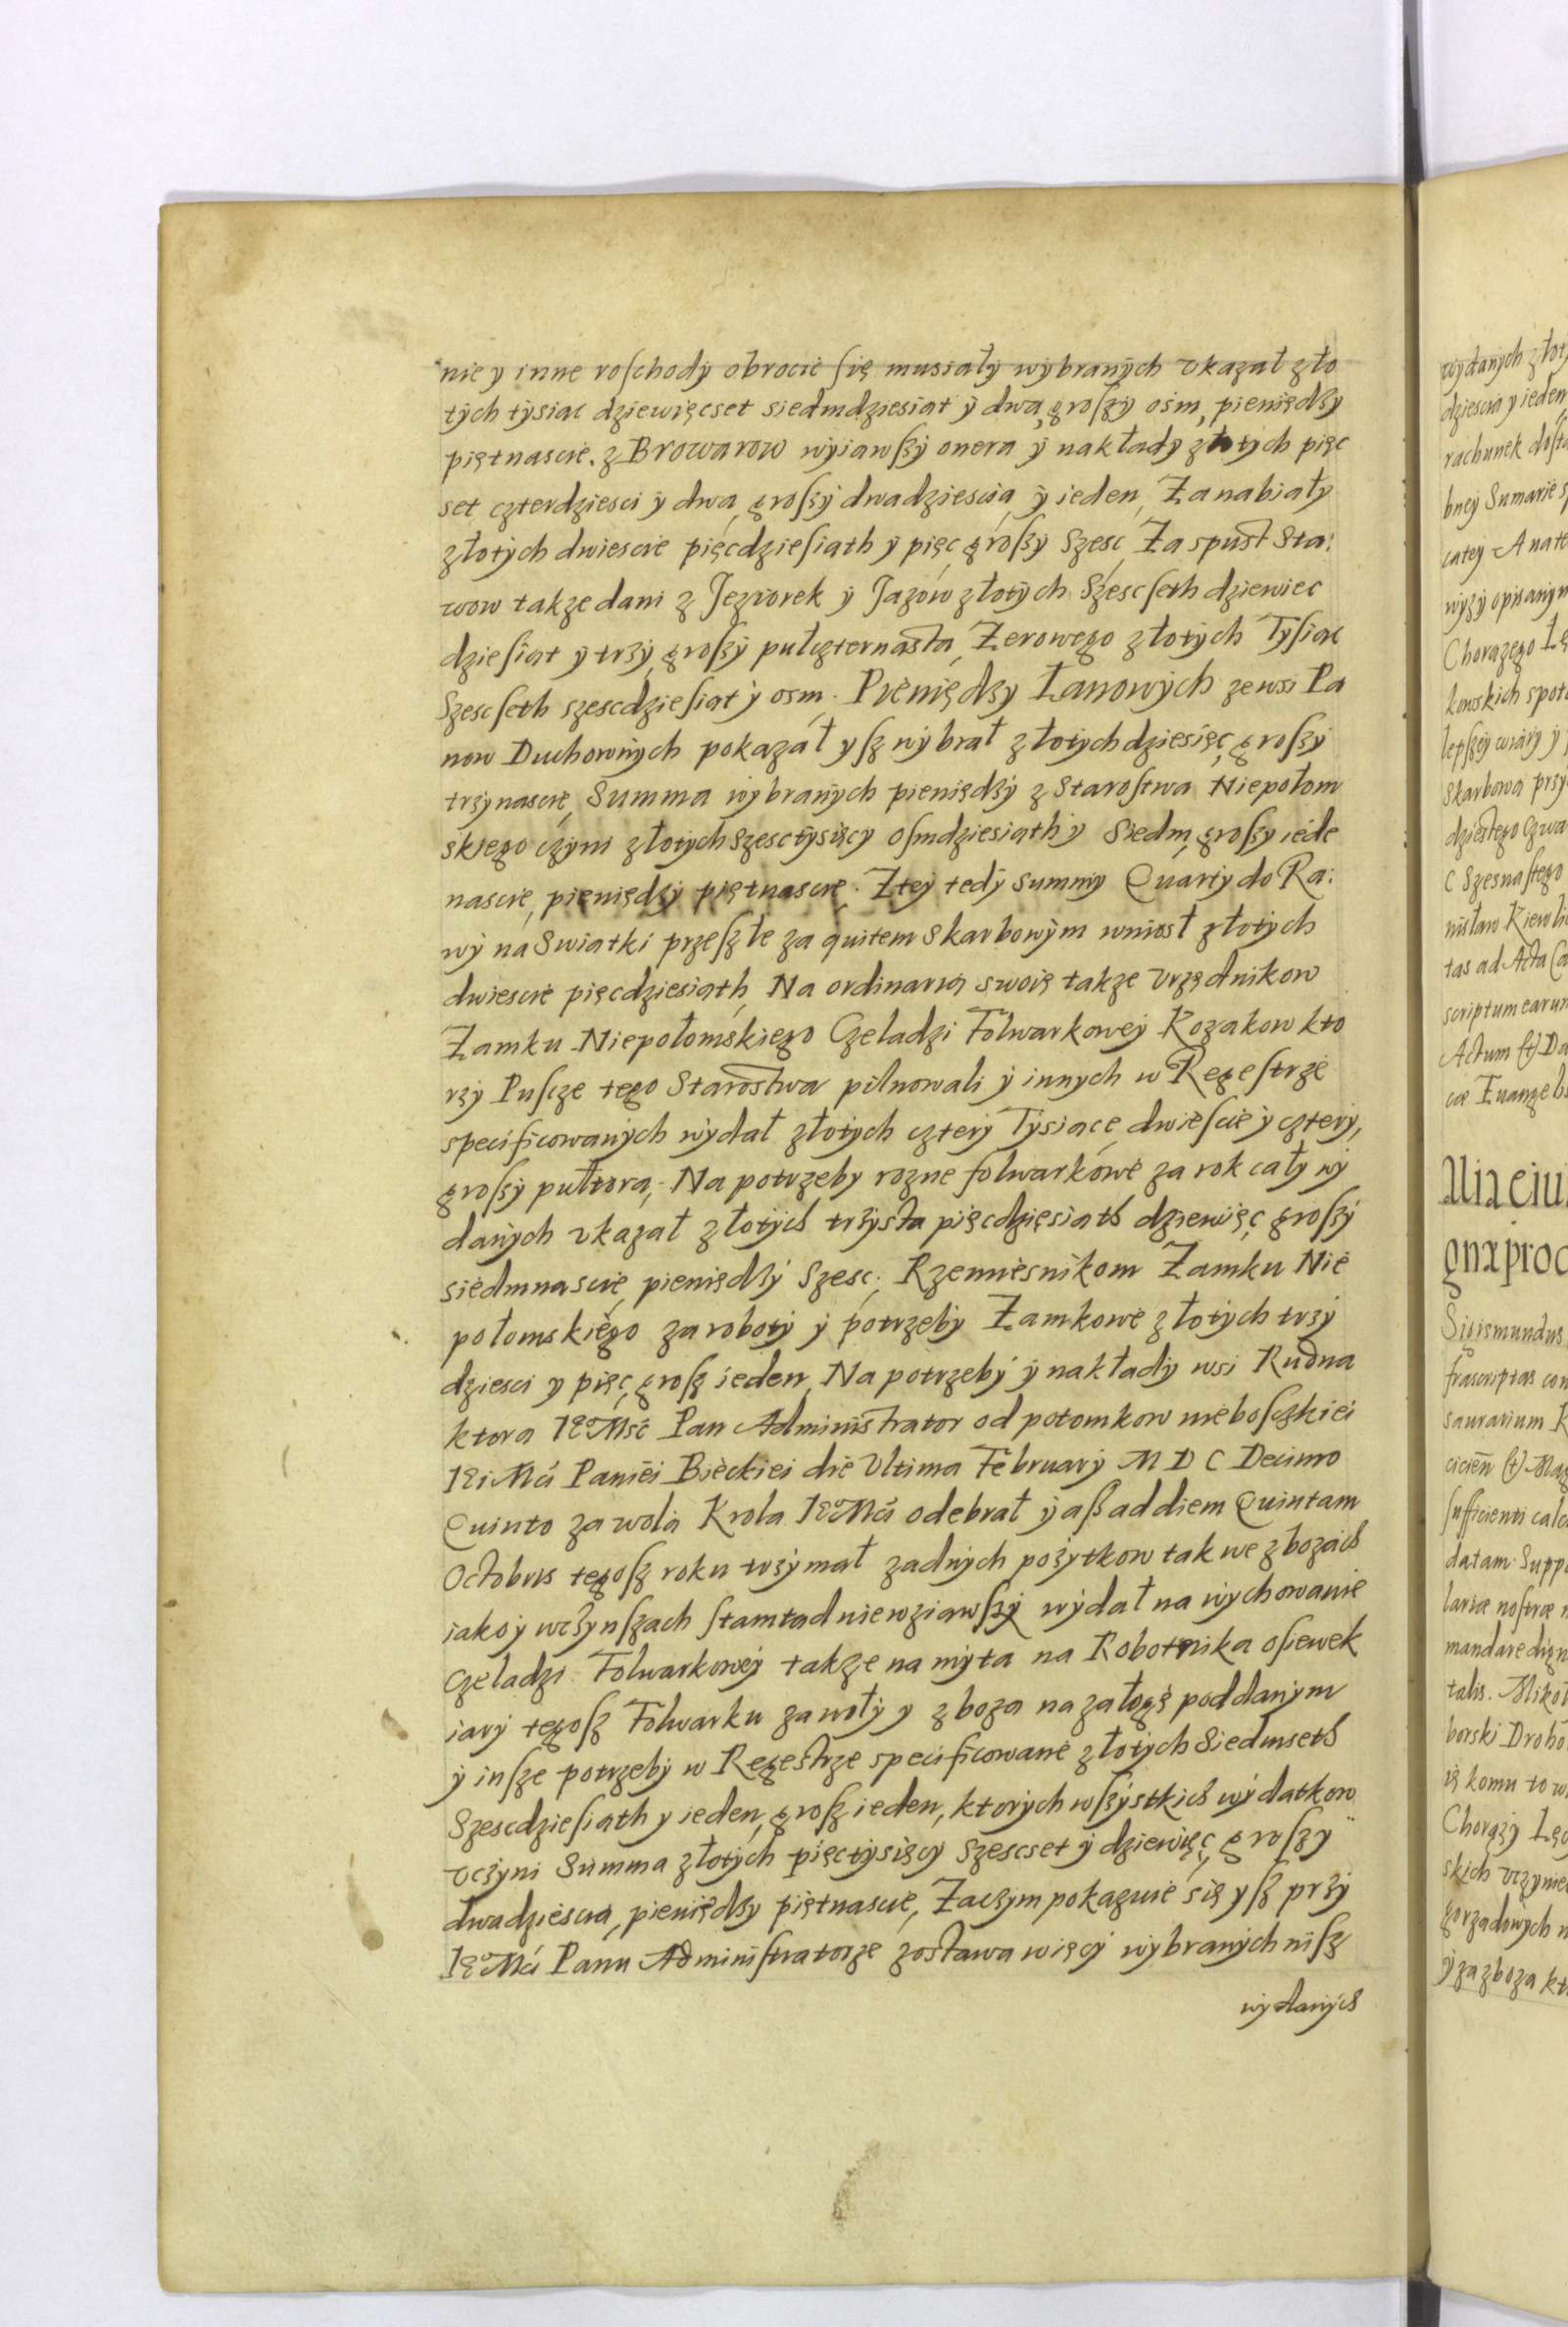 nie y inne roschody obrocić się musiały wybranych vkazał zło
tych tysiac dziewięcset siedmdziesiat y dwa, groszy ośm, pieniędzy
piętnascie. z Browarow wyiawszy onera y nakłady złotych pięc
set czterdziesci y dwa, groszy dwadziescia y ieden, Za nabiały
złotych dwiescie pięcdziesiath y pięc, groszy Szesć, Za spust Sta:
wow takze dani z Jeziorek y Jazów złotych Szescseth dziewiec
dziesiat y trzy, groszy pułczternasta, Zerowego złotych Tysiac
Szescseth szescdziesiat y osm. Pieniędzy Łanowych ze wsi Pa
now Duchownych pokazáł ysz wybrał złotych dziesięc, groszy
trzynascie, Summa wybranych pieniędzy z Starostwa Niepołom
skiego czyni złotych szesctysięcy osmdziesiath y Siedm, groszy iede
nascie, pieniędzy piętnascie. Z tey tedy summy Quarty do Ra:
wy na Swiatki przeszłe za quitem Skarbowym wniosł złotych
dwiescie pięcdziesiath, Na ordinaria swoię takze vrzędnikow
Zamku Niepołomskiego Czeladzi Folwarkowey Kozakow kto
rzy Puscze tego Starostwa pilnowali y innych w Regestrze
specificowanych wydał złotych cztery Tysiące dwiescie y cztery,
groszy pułtora, Na potrzeby rozne folwarkowe za rok cały wy
danych vkazał złotych trzysta pięcdzięsiath dziewięc, groszy
siedmnascie, pieniędzy Szesc. Rzemiesnikom Zamku Nie
połomskiego za roboty y potrzeby Zamkowe złotych trzy
dziesci y pięc, grosz ieden, Na potrzeby y nakłady wsi Rudna
ktora Ie° Mść Pan Administrator od potomkow nieboszczkiei
Iei Mći Paniei Bieckiei die Vltima February M D C Decimo
Quinto za wolą Krola Ie° Mći odebrał y asz ad diem Quintam
Octobris tegosz roku trzymał zadnych pożytkow tak we zbozach
iako y w czynszach stamtad nie wziawszy wydał na wychowanie
Czeladzi Folwarkowey takze na myta na Robotnika osiewek
iary tegosz Folwarku za woły y zboza na załogę poddanym
y insze potrzeby w Regestrze specificowane złotych Siedmseth
Szescdziesiath y ieden, grosz ieden, ktorych wszystkich wydatkow
vczyni Summa złotych pięctysięcy Szescset y dziewięc, groszy
dwadziescia, pieniędzy piętnascie, Zaczym pokazuie się ysz przy
Ie° Mći Panu Administratorze zostawa więcy wybranych nisz
wydanych
wydanych złot
dziescia y ieden
rachunek dosta
bney Sumarie s
catey A nate
wyzy opisanym
Chorazego Lę
kowskich spot
lepszey wiary y
Skarbowa przy
dziestego Czwa
C Szesnastego
nisław Kiewli
tas ad Acta Ca
scriptum earum
Actum (t) Da
cæ Euangeli
gnaproc
Sigismundus
frascriptas con
saurarium R
cicień (t) Mag
sufficienti calc
datam Supp
lariæ nostræ
mandare dign
talis. Mikoł
borski Droho
iż komu to w
Chorąży Lęc
skich vczyni
gorzadowych n
y za zboza kt